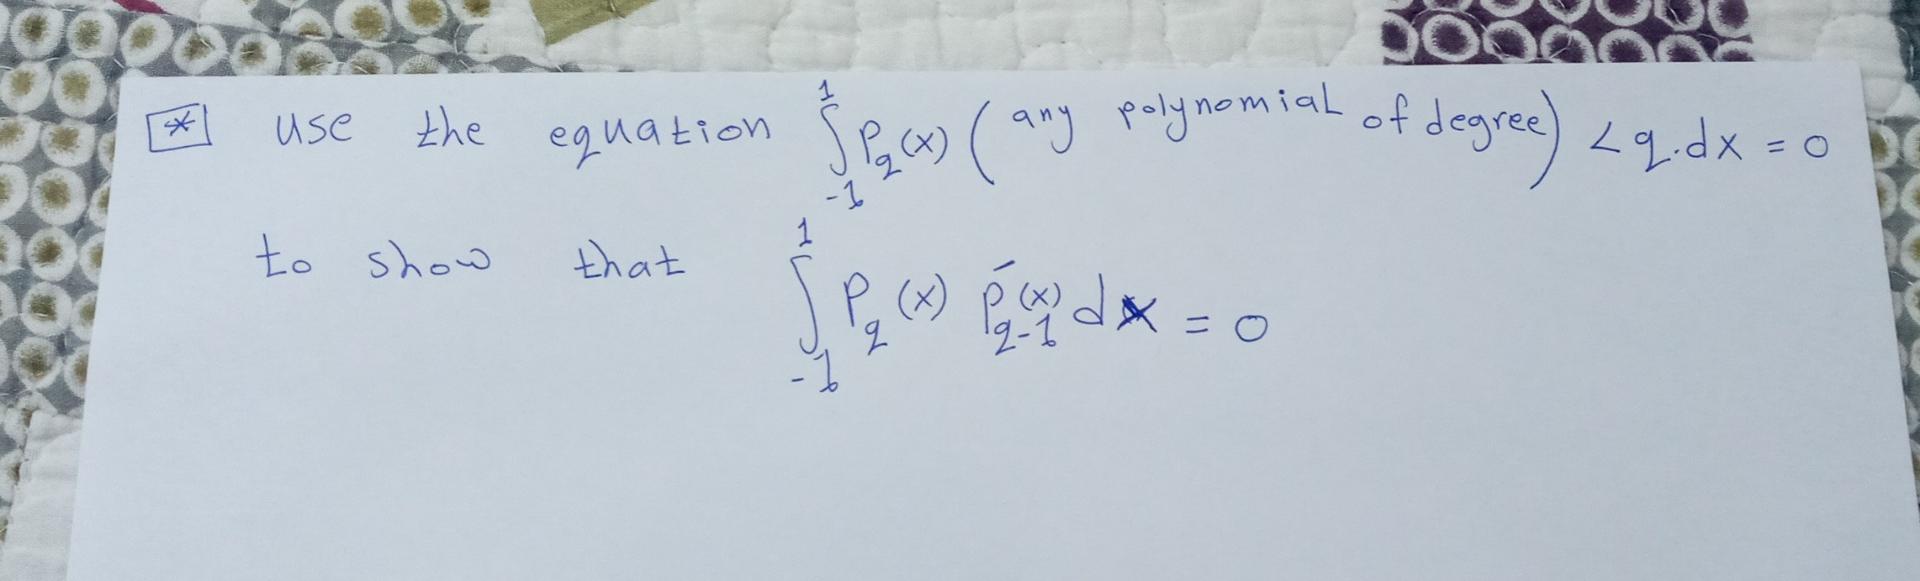 [*] use the equation ∫₋₁¹ P_q(x) (any polynomial of degree) < q.dx = 0
to show that ∫₋₁¹ P_q(x) P̄_q-1(x) dx = 0